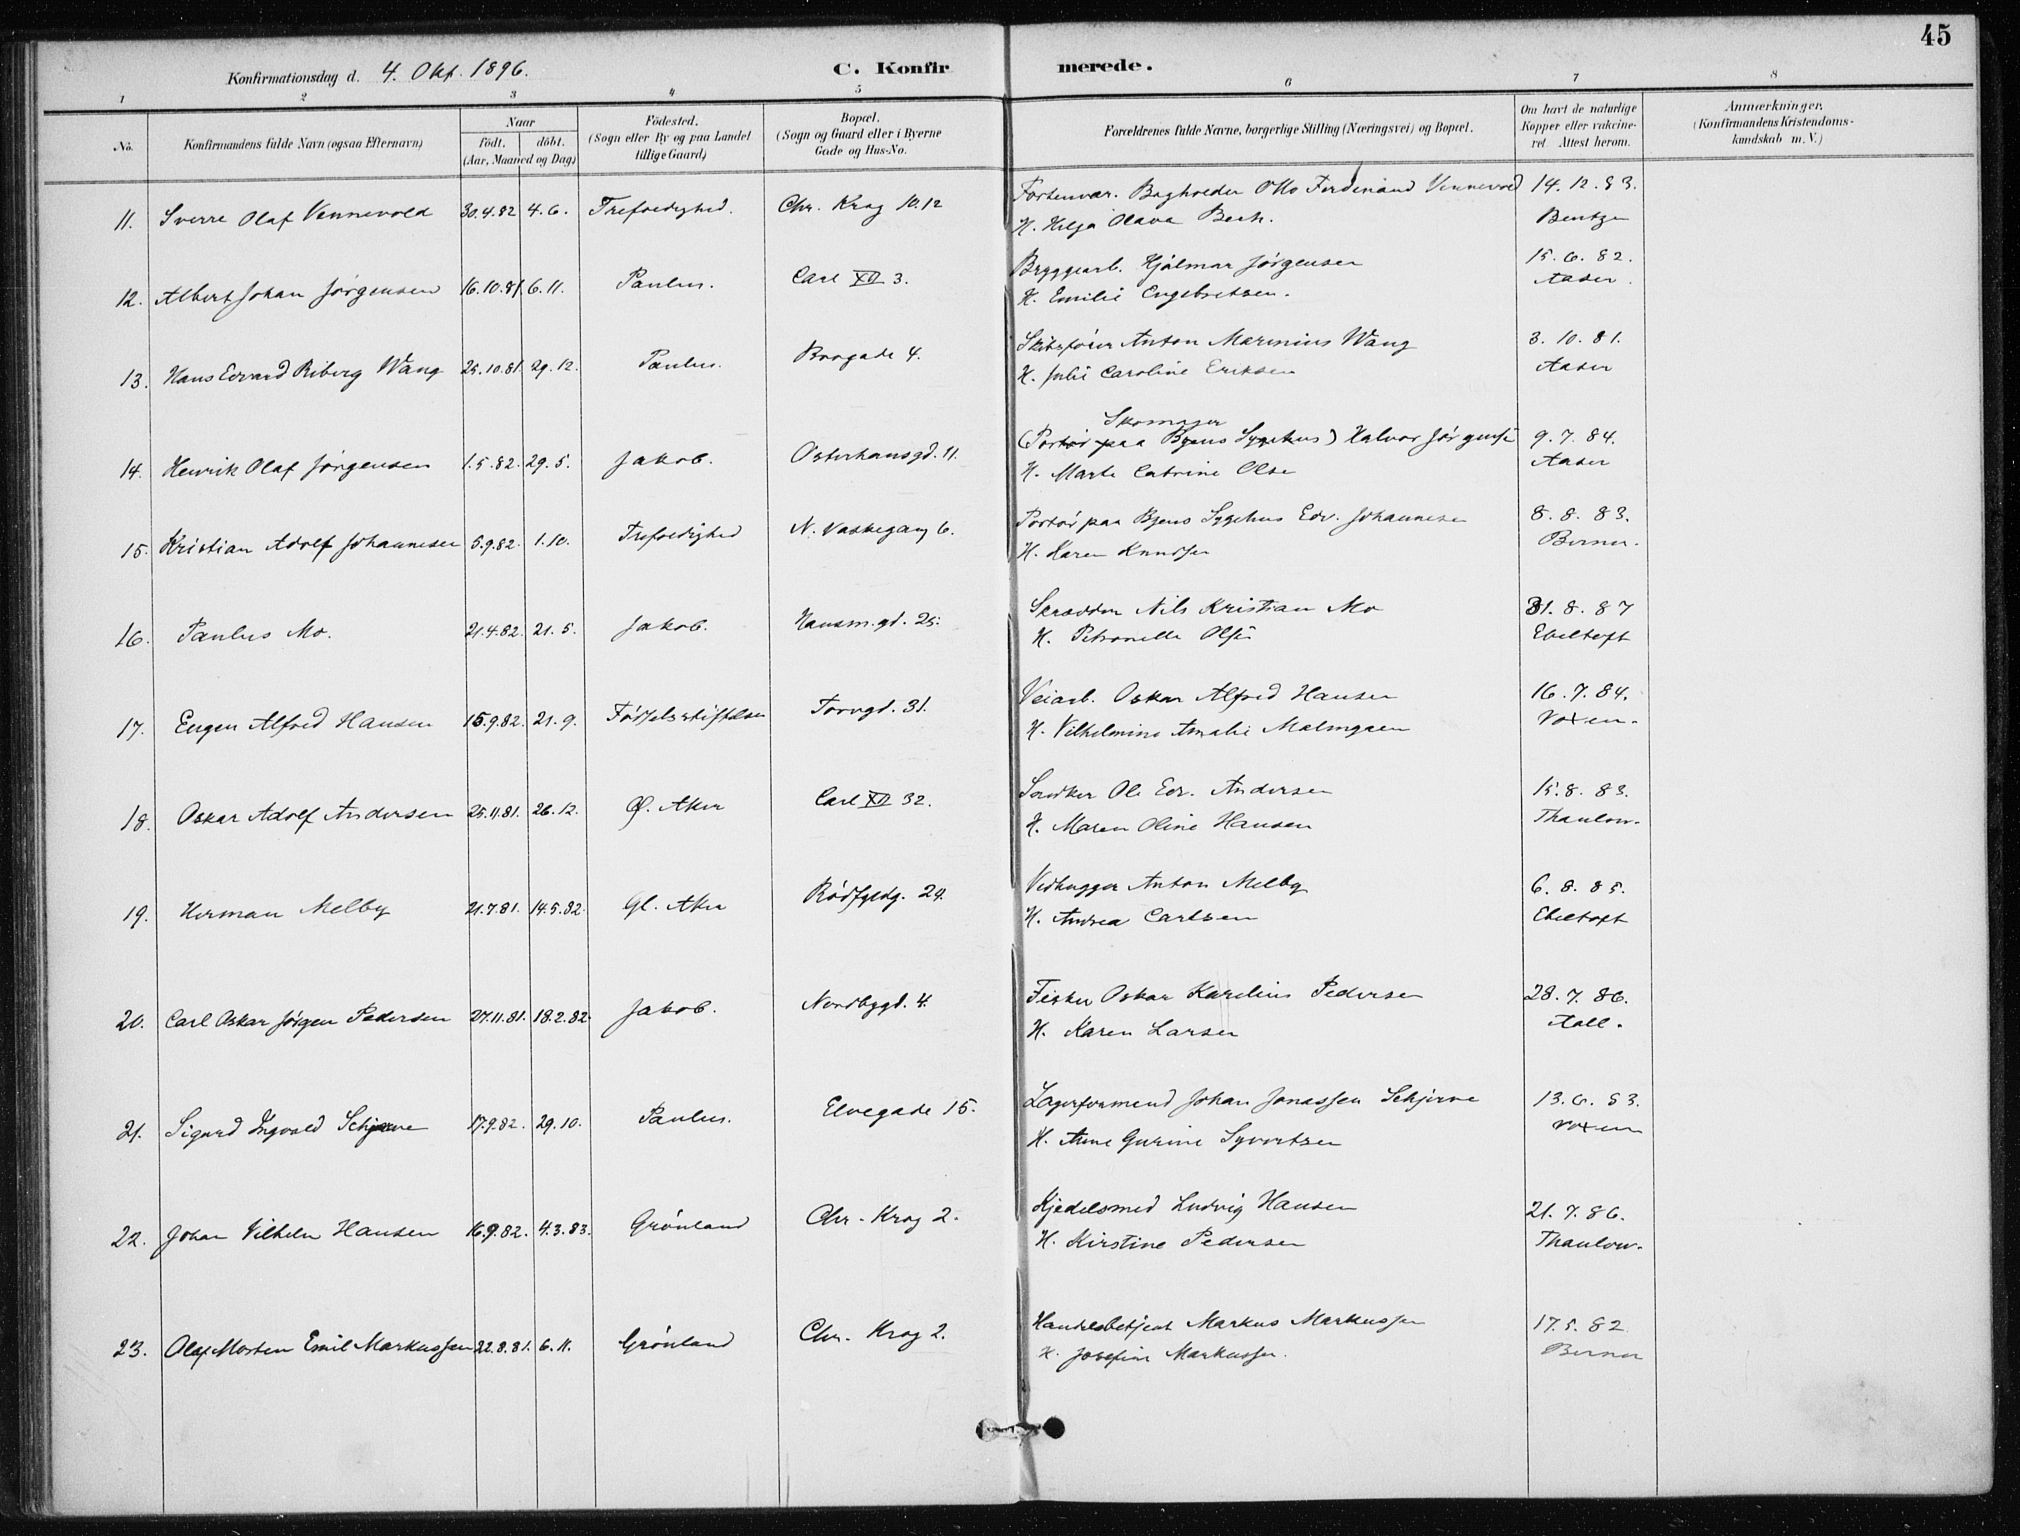 45
Konfirmationsdag d. 4. Okt. 1896. C. Konfirmerede.
1 2 3 4 5 6 7 8
No. Konfirmandens fulde Navn (ogsaa Efternavn) Naar födt. döbt. (Aar, Maaned og Dag) Födested. (Sogn eller By og paa Landet tillige Gaard) Bopæl. (Sogn og Gaard eller i Byerne Gade og Hus-No. Forældrenes fulde Navne, borgerlige Stilling (Næringsvei) og Bopæl. Om havt de naturlige Kopper eller vakcineret. Attest herom. Anmærkninger. (Konfirmandens Kristendomskundskab m. V.)
11. Sverre Olaf Vennevold 30.4.82 4.6. Trefoldighed. Chr. Krog 10.12 Forhenvær. Bogholder Otto Ferdinand Vennevold 14.12.83.
H. Helga Olava Bech. Bentzen
12. Albert Johan Jørgensen 16.10.81 6.11. Paulus. Carl XII 3. Bryggearb. Hjalmar Jørgensen 15.6.82.
H. Emilie Engebretsen. Aaser.
13. Hans Edvard Riberg Wang 25.10.81. 29.12. Paulus. Brogade 4. Anton Marinius Wang 3.10.81.
H. Julie Caroline Eriksen Aaser
14. Henrik Olaf Jørgensen 1.5.82. 29.5. Jakob. Osterhausgd. 11. Skomager
(Portør paa Byens Sygehus) Halvor Jørgensen 9.7.84.
H. Marte Catrine Olse Aaser
15. Kristian Adolf Johannesen 5.9.82. 1.10. Trefoldighed N. Vaskegang 6. Portør paa Byens Sygehus Edv. Johannesen 8.8.83.
H. Karen Knudsen Berner.
16. Paulus Mo. 21.4.82. 21.5. Jakob. Hausm.gd. 25. Skrædder Nils Kristian Mo 31.8.87
H. Petronelle Olsen Ebeltoft
17. Eugen Alfred Hansen 15.9.82. 21.9. Fødselsstiftelsen Torvgd. 31. Veiarb. Oskar Alfred Hansen 16.7.84.
H. Vilhelmine Amalie Malmgren Voxen.
18. Oskar Adolf Andersen 25.11.81. 26.12. Ø. Aker Carl XII 32. Snedker Ole Edv. Andersen 15.8.83.
H. Maren Oline Hansen Thaulow.
19. Herman Melby 21.7.81. 14.5.82. Gl. Aker Rødfyldg. 24. Vedhugger Anton Melby 6.8.85.
H. Andrea Carlsen Ebeltoft
20. Carl Oskar Jörgen Pedersen 27.11.81. 18.2.82. Jakob. Nordbygd. 4. Fisker Oskar Karelius Pedersen 28.7.86.
H. Karen Larsen Aall.
21. Sigurd Ingvald Schjerve 17.9.82. 29.10. Paulus. Elvegade 15. Lagerformend Johan Jonassen Schjerve 13.6.83.
H. Anne Gurine Syvertsen Voxen
22. Johan Vilhelm Hansen 16.9.82. 4.3.83. Grönland Chr. Krog 2. Kjedelsmed Ludvig Hansen 21.7.86.
H. Kirstine Pedersen Thaulow.
23. Olaf Morten Emil Markussen 22.8.81. 6.11. Grönland Chr. Krog 2. Handelsbetjent Markus Markussen 17.5.82
H. Josefine Markussen. Berner